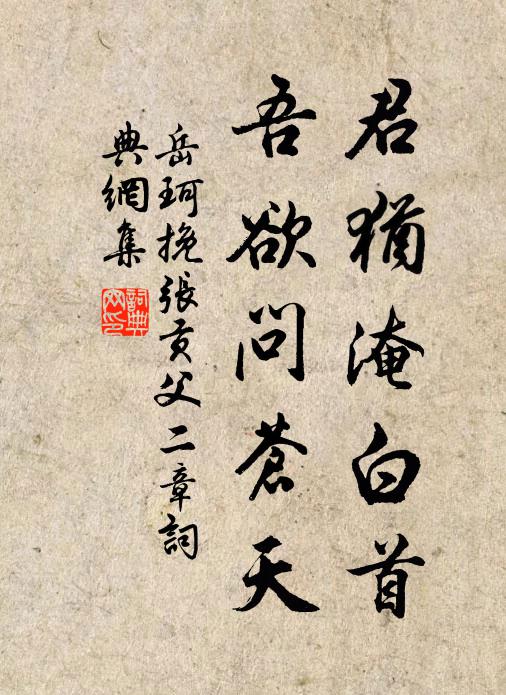 君猶淹白首
吾欲問蒼天
岳珂挽張貢父二章詞
典網集
詞典
网印